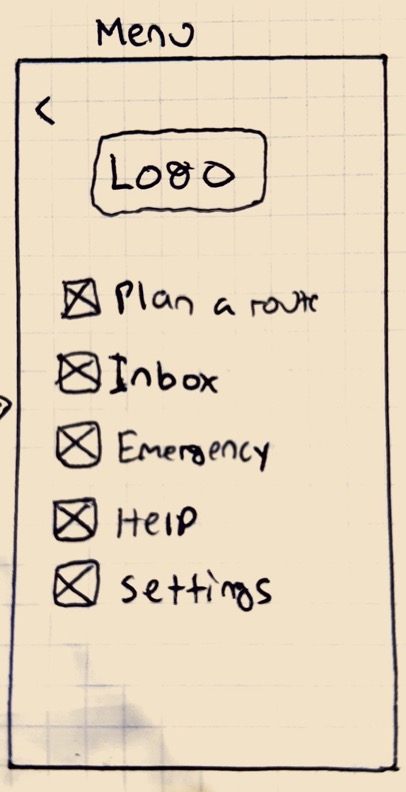 Menu
<
Logo
Plan a route
Inbox
Emergency
Help
Settings